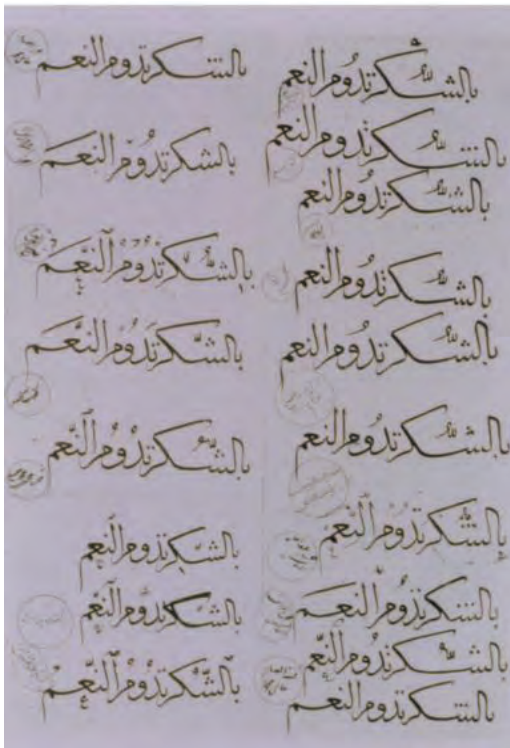 بالشكر لله تدوم النعم
بالشكر لله تدوم النعم
بالشكر لله تدوم النعم
بالشكر لله تدوم النعم
بالشكر لله تدوم النعم
بالشكر لله تدوم النعم
بالشكر تدوم النعم
بالشكر تدوم النعم
بالشكر لله تدوم النعم
بالشكر تدوم النعم
بالشكر تدوم النعم
بالشكر تدوم النعم
بالشكر لله تدوم النعم
بالشكر تدوم النعم
بالشكر تدوم النعم
بالشكر تدوم النعم
بالشكر تدوم النعم
بالشكر تدوم النعم